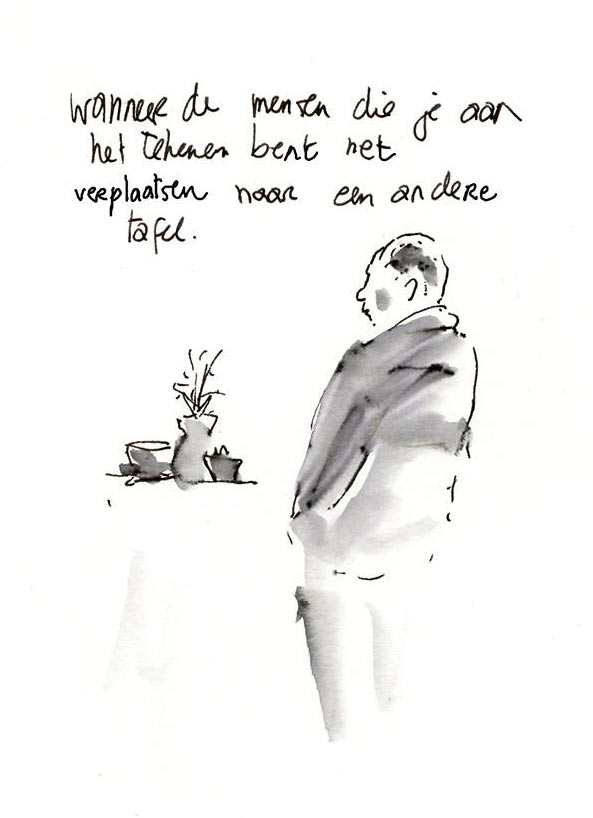 Wanneer de mensen die je aan
het tekenen bent net
verplaatsen naar een andere
tafel.